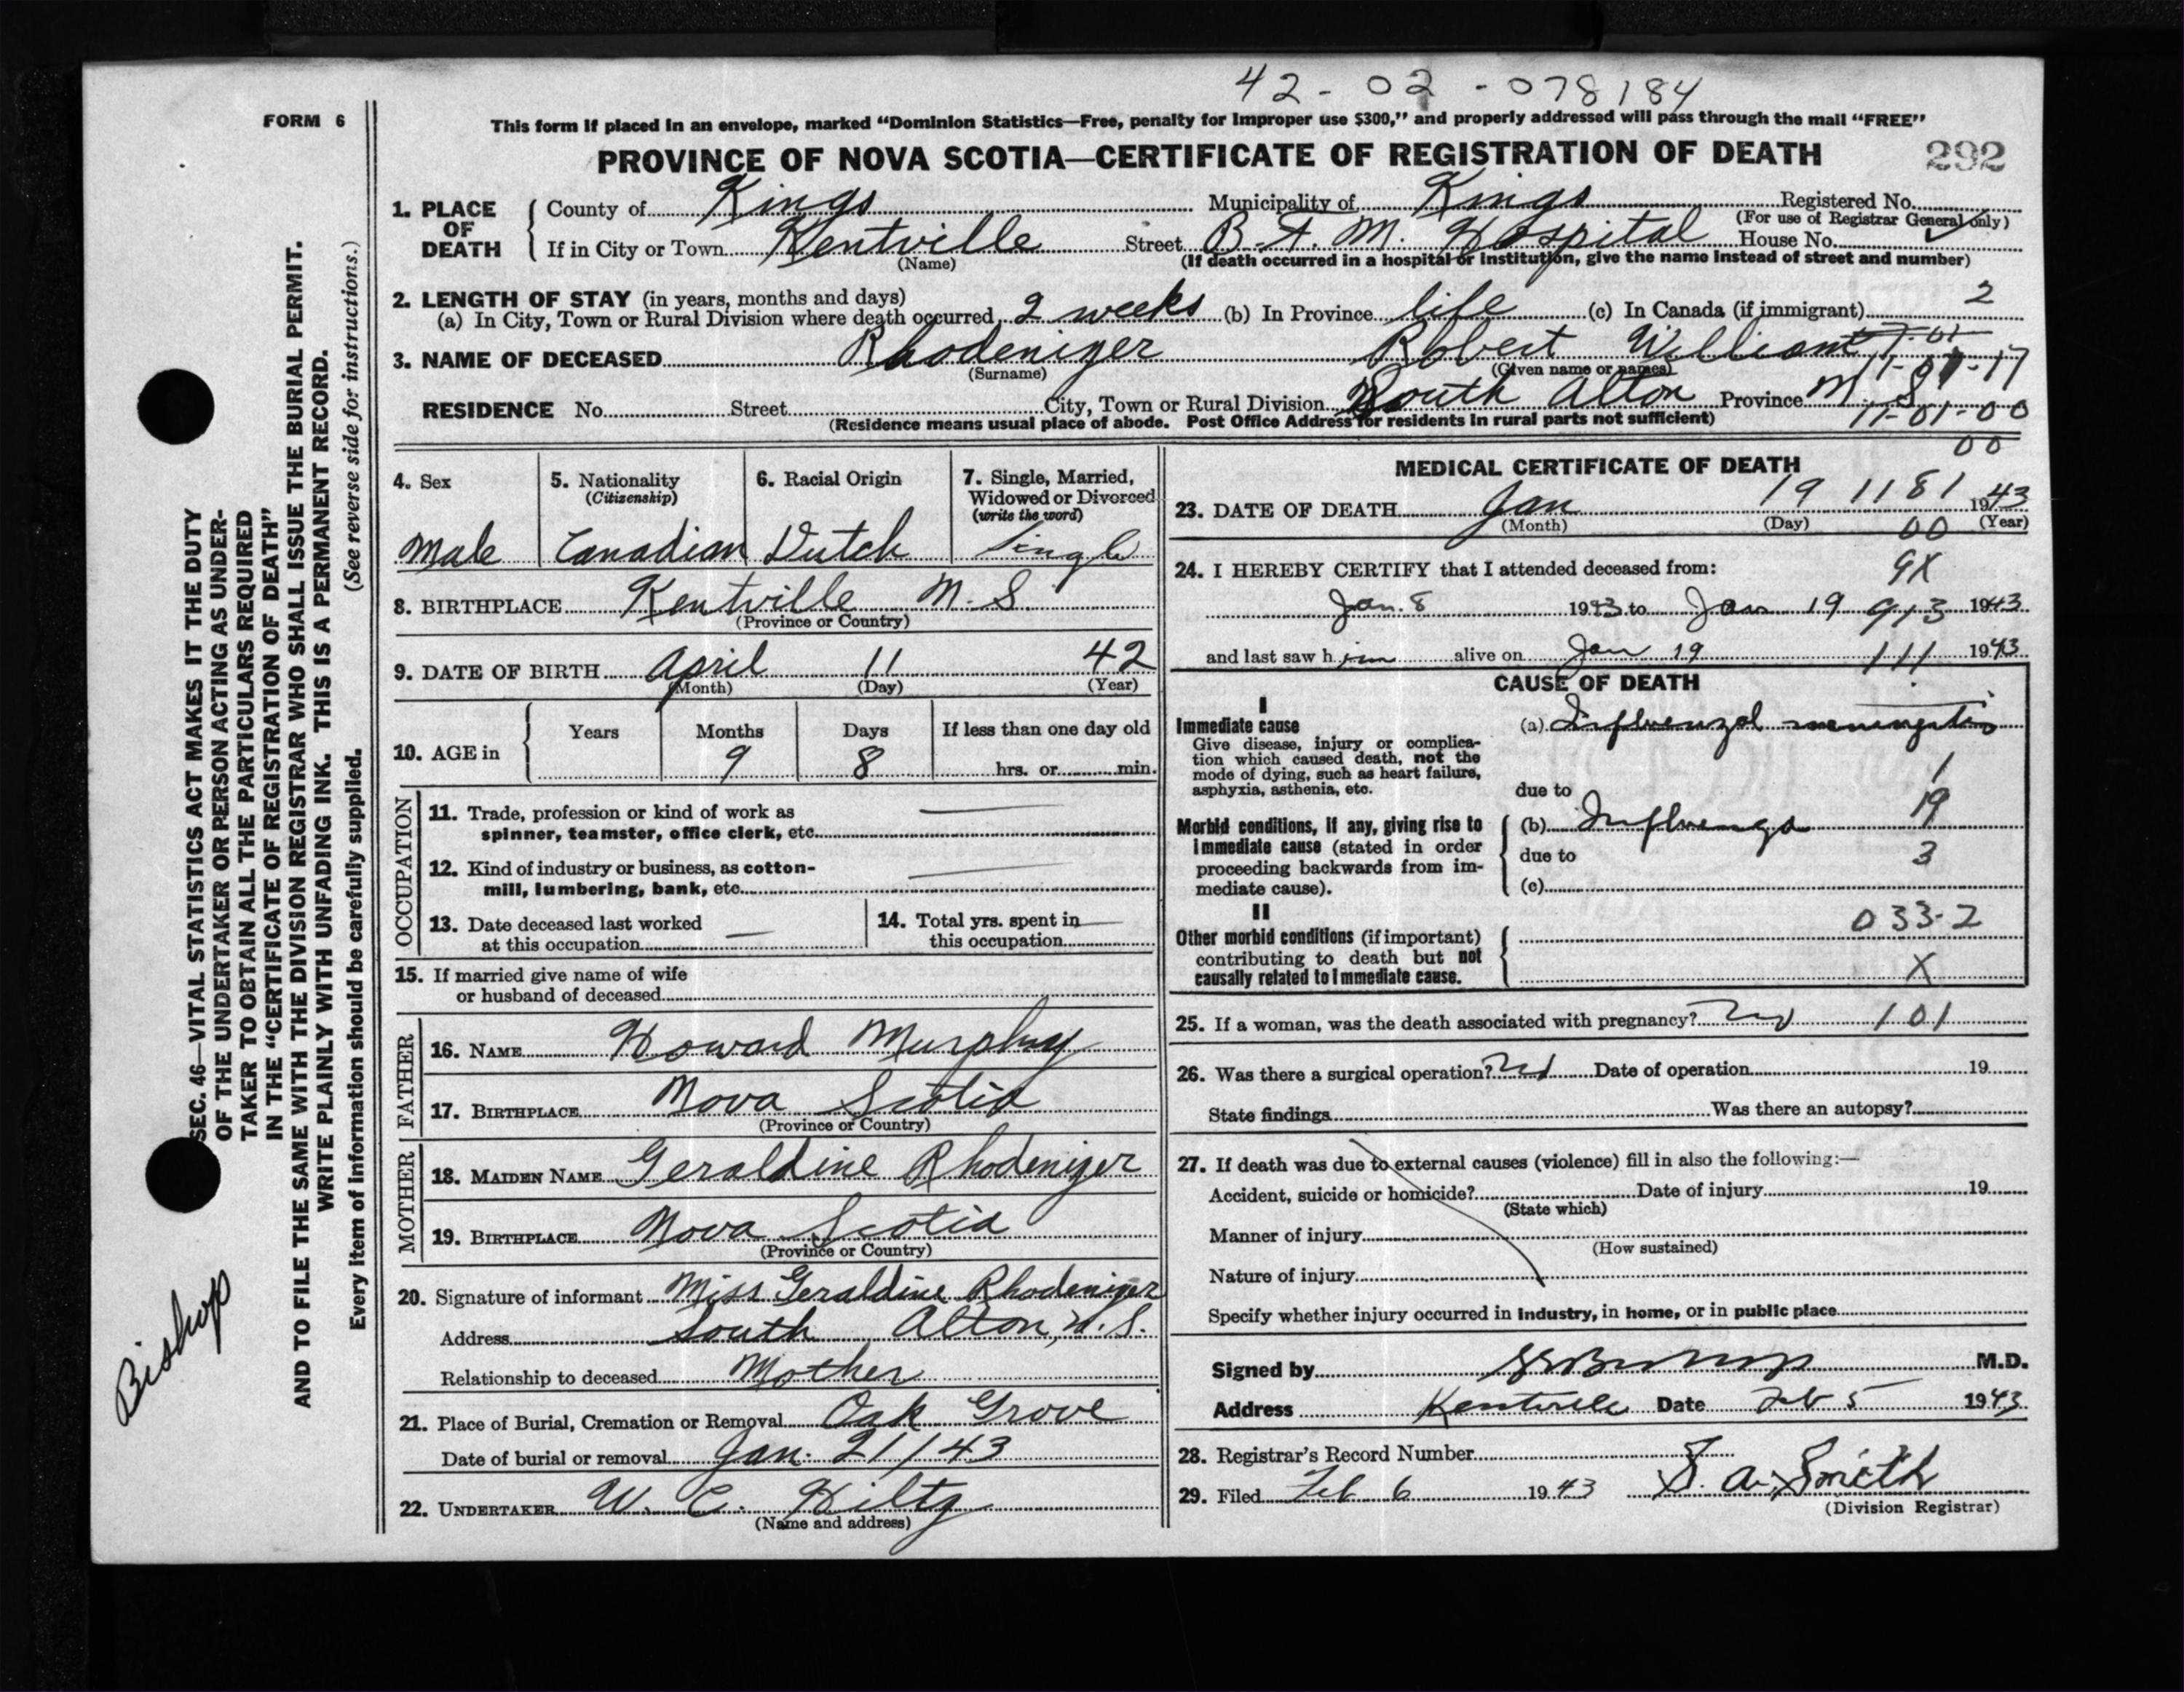 42-02-078184
FORM 6
This form if placed in an envelope, marked “Dominion Statistics—Free, penalty for improper use $300,” and properly addressed will pass through the mail “FREE”
PROVINCE OF NOVA SCOTIA—CERTIFICATE OF REGISTRATION OF DEATH 292
1. PLACE OF DEATH County of Kings Municipality of Kings Registered No.
(For use of Registrar General only)
If in City or Town Kentville Street B. F. M. Hospital House No.
(Name) (If death occurred in a hospital or institution, give the name instead of street and number)
2. LENGTH OF STAY (in years, months and days)
(a) In City, Town or Rural Division where death occurred 2 weeks (b) In Province life (c) In Canada (if immigrant) 2
3. NAME OF DECEASED Rhodenizer Robert William
(Surname) (Given name or names) 11-01-17
RESIDENCE No. Street City, Town or Rural Division South Alton Province N. S. 11-01-00
(Residence means usual place of abode. Post Office Address for residents in rural parts not sufficient)
00
4. Sex 5. Nationality (Citizenship) 6. Racial Origin 7. Single, Married, Widowed or Divorced (write the word)
Male Canadian Dutch Single
8. BIRTHPLACE Kentville N. S.
(Province or Country)
9. DATE OF BIRTH April 11 42
(Month) (Day) (Year)
10. AGE in Years Months Days If less than one day old
9 8 hrs. or min.
OCCUPATION
11. Trade, profession or kind of work as
spinner, teamster, office clerk, etc.
12. Kind of industry or business, as cotton-
mill, lumbering, bank, etc.
13. Date deceased last worked
at this occupation
14. Total yrs. spent in
this occupation
15. If married give name of wife
or husband of deceased
FATHER
16. NAME Howard Murphy
17. BIRTHPLACE Nova Scotia
(Province or Country)
MOTHER
18. MAIDEN NAME Geraldine Rhodenizer
19. BIRTHPLACE Nova Scotia
(Province or Country)
20. Signature of informant Miss Geraldine Rhodenizer
Address South Alton, N. S.
Relationship to deceased Mother
21. Place of Burial, Cremation or Removal Oak Grove
Date of burial or removal Jan. 21/43
22. UNDERTAKER W. C. Hiltz
(Name and address)
MEDICAL CERTIFICATE OF DEATH
23. DATE OF DEATH Jan 19 1181 1943
(Month) (Day) 00 (Year)
24. I HEREBY CERTIFY that I attended deceased from: 9X
Jan. 8 1943 to Jan 19 913 1943
and last saw him alive on Jan 19 111 1943
CAUSE OF DEATH
I
Immediate cause (a) Influenzal meningitis
Give disease, injury or complica-
tion which caused death, not the
mode of dying, such as heart failure,
asphyxia, asthenia, etc.
1
due to
Morbid conditions, if any, giving rise to (b) Influenza 19
immediate cause (stated in order
proceeding backwards from im-
mediate cause).
due to 3
(c)
II
Other morbid conditions (if important) 033-2
contributing to death but not
causally related to immediate cause. X
25. If a woman, was the death associated with pregnancy? No 101
26. Was there a surgical operation? No Date of operation 19
State findings Was there an autopsy?
27. If death was due to external causes (violence) fill in also the following:—
Accident, suicide or homicide? Date of injury 19
(State which)
Manner of injury
(How sustained)
Nature of injury
Specify whether injury occurred in industry, in home, or in public place
Signed by M.D.
Address Kentville Date Feb 5 1943
28. Registrar's Record Number
29. Filed Feb 6 1943 S. A. Smith
(Division Registrar)
SEC. 46—VITAL STATISTICS ACT MAKES IT THE DUTY
OF THE UNDERTAKER OR PERSON ACTING AS UNDER-
TAKER TO OBTAIN ALL THE PARTICULARS REQUIRED
IN THE “CERTIFICATE OF REGISTRATION OF DEATH”
AND TO FILE THE SAME WITH THE DIVISION REGISTRAR WHO SHALL ISSUE THE BURIAL PERMIT.
WRITE PLAINLY WITH UNFADING INK. THIS IS A PERMANENT RECORD.
Every item of information should be carefully supplied. (See reverse side for instructions.)
Bishop